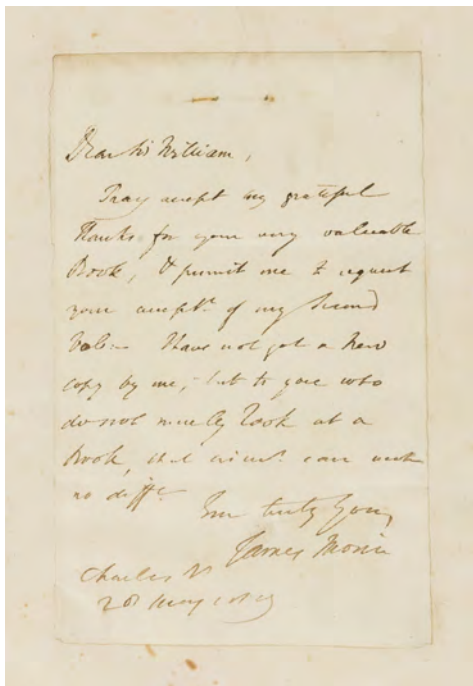 Dear Sir William,
Pray accept my grateful
thanks for your very valuable
Book, & permit me to request
your accept.ce of my second
Vol:— I have not got a new
copy by me, but to you who
do not merely look at a
Book, that circums.e can make
no diff.ce
Ever truly Yours,
James Morier
Charles St
20 May